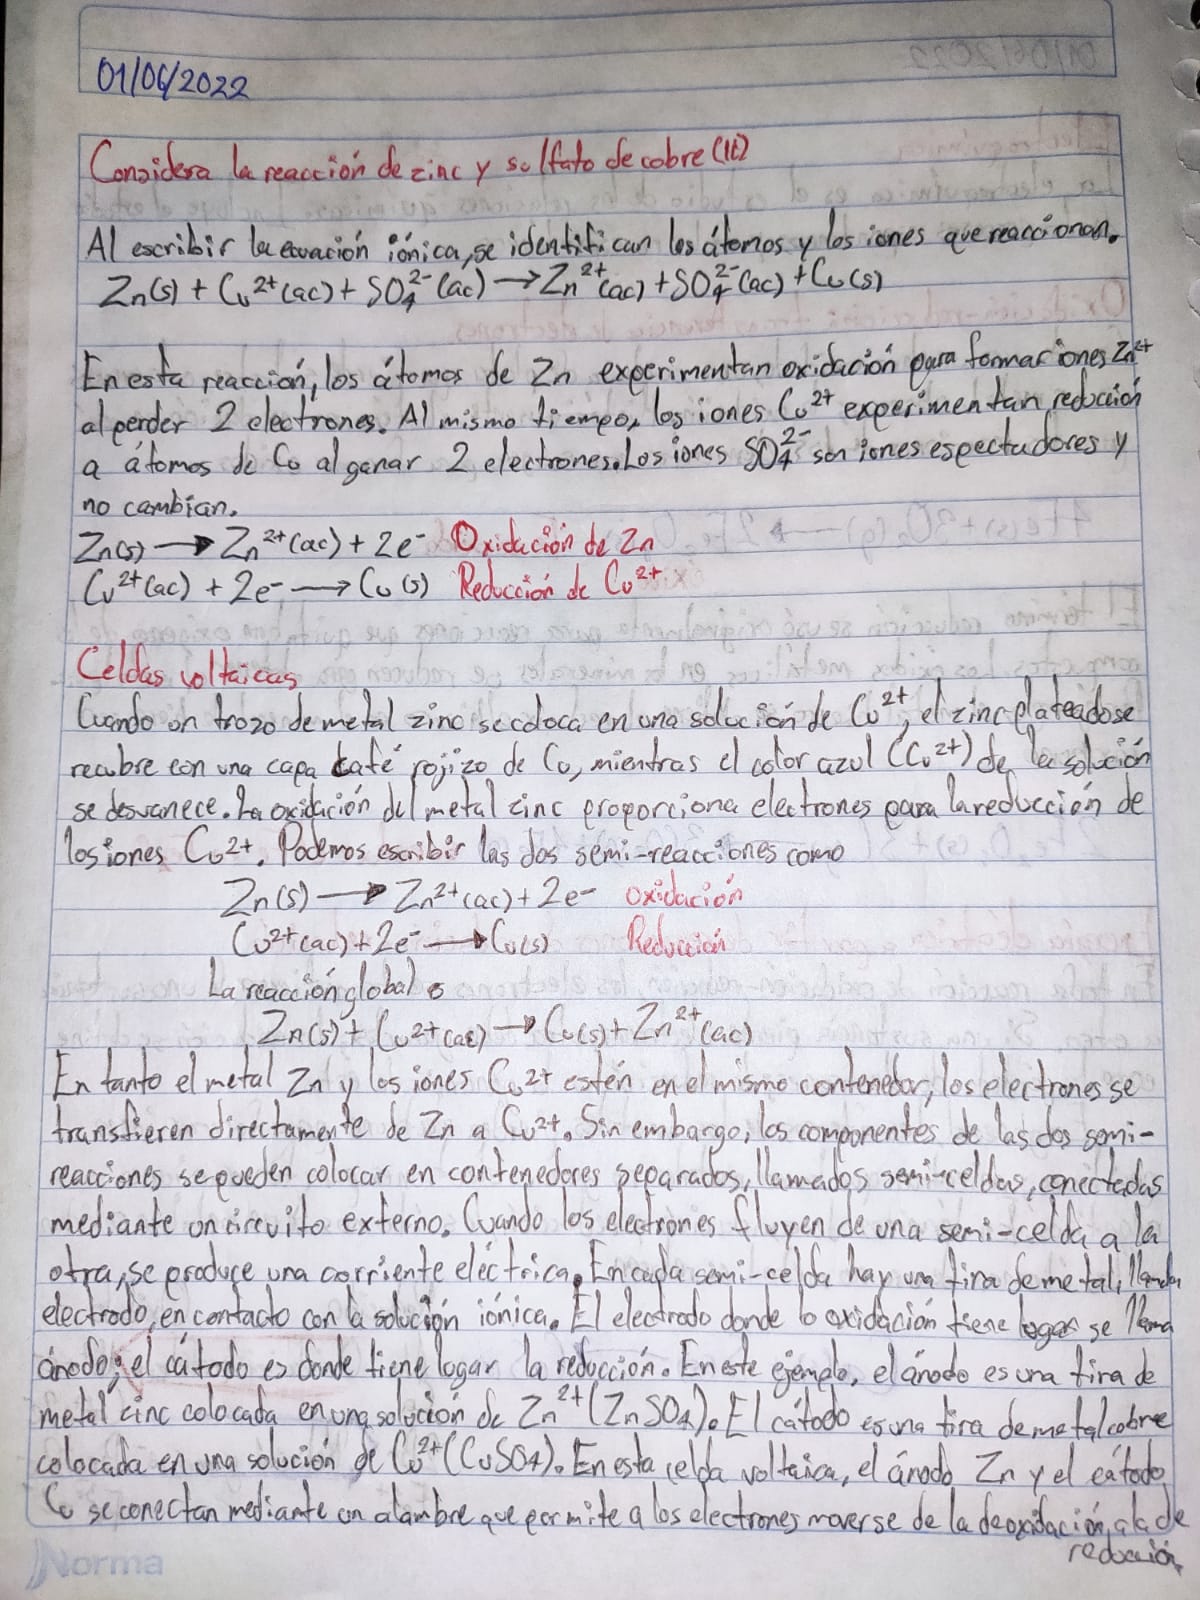 01/06/2022
Considera la reacción de zinc y sulfato de cobre (II)
Al escribir la ecuación iónica, se identifican los átomos y los iones que reaccionan.
Zn(s) + Cu²⁺(ac) + SO₄²⁻(ac) → Zn²⁺(ac) + SO₄²⁻(ac) + Cu(s)
En esta reacción, los átomos de Zn experimentan oxidación para formar iones Zn²⁺
al perder 2 electrones. Al mismo tiempo, los iones Cu²⁺ experimentan reducción
a átomos de Cu al ganar 2 electrones. Los iones SO₄²⁻ son iones espectadores y
no cambian.
Zn(s) → Zn²⁺(ac) + 2e⁻ Oxidación de Zn
Cu²⁺(ac) + 2e⁻ → Cu(s) Reducción de Cu²⁺
Celdas voltaicas
Cuando un trozo de metal zinc se coloca en una solución de Cu²⁺, el zinc plateado se
recubre con una capa café rojizo de Cu, mientras el color azul (Cu²⁺) de la solución
se desvanece. La oxidación del metal zinc proporciona electrones para la reducción de
los iones Cu²⁺. Podemos escribir las dos semi-reacciones como
Zn(s) → Zn²⁺(ac) + 2e⁻ oxidación
Cu²⁺(ac) + 2e⁻ → Cu(s) Reducción
La reacción global
Zn(s) + Cu²⁺(ac) → Cu(s) + Zn²⁺(ac)
En tanto el metal Zn y los iones Cu²⁺ estén en el mismo contenedor, los electrones se
transfieren directamente de Zn a Cu²⁺. Sin embargo, los componentes de las dos semi-
reacciones se pueden colocar en contenedores separados, llamados semi-celdas, conectadas
mediante un circuito externo. Cuando los electrones fluyen de una semi-celda a la
otra, se produce una corriente eléctrica. En cada semi-celda hay una tira de metal, llamada
electrodo, en contacto con la solución iónica. El electrodo donde la oxidación tiene lugar se llama
ánodo; el cátodo es donde tiene lugar la reducción. En este ejemplo, el ánodo es una tira de
metal cinc colocada en una solución de Zn²⁺ (ZnSO₄). El cátodo es una tira de metal cobre
colocada en una solución de Cu²⁺ (CuSO₄). En esta celda voltaica, el ánodo Zn y el cátodo
Cu se conectan mediante un alambre que permite a los electrones moverse de la de oxidación, a la de
reducción
Norma